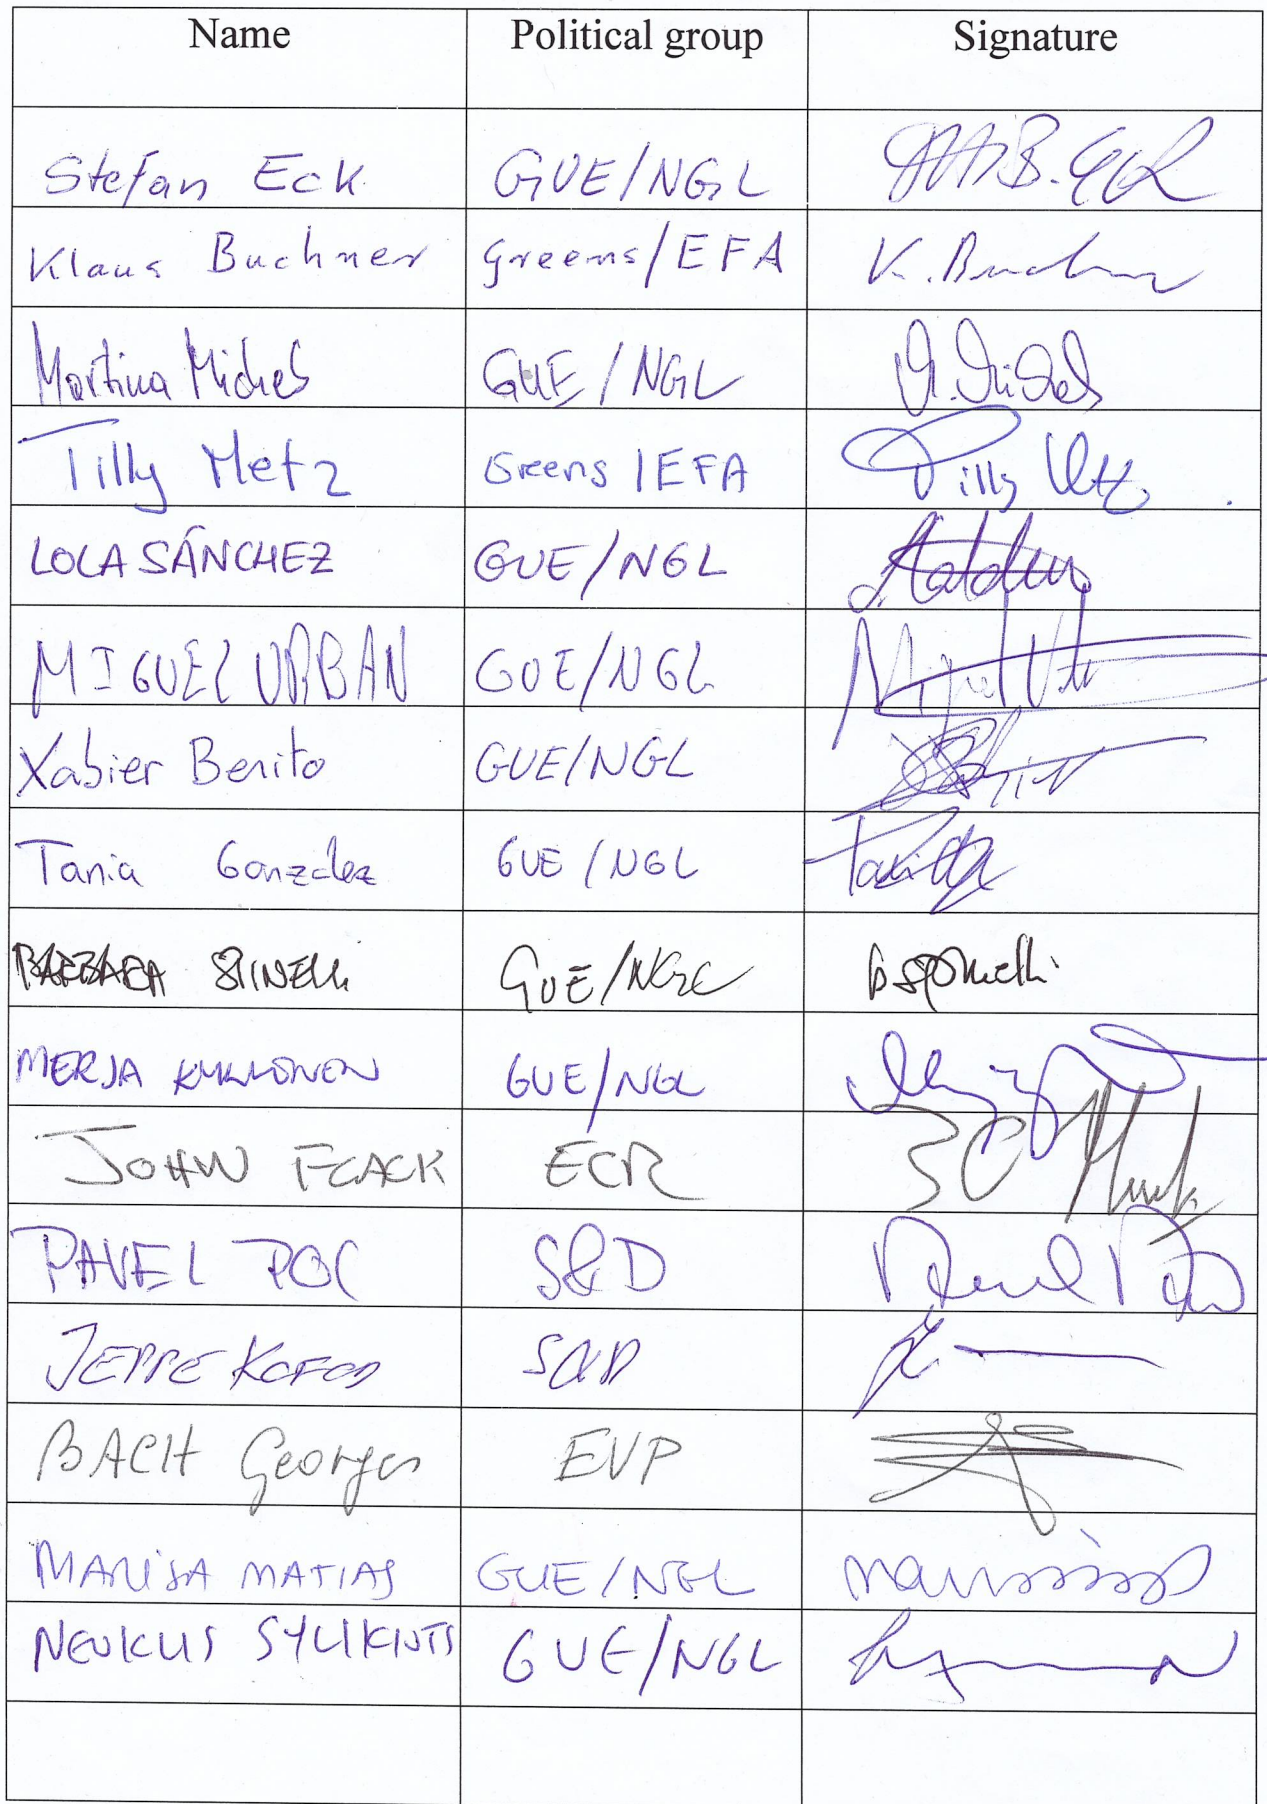 Name Political group Signature
Stefan Eck GUE/NGL
Klaus Buchner Greens/EFA K. Buchner
Martina Michels GUE/NGL M. Michels
Tilly Metz Greens/EFA Tilly Metz
LOLA SÁNCHEZ GUE/NGL
MIGUEL URBAN GUE/NGL Miguel
Xabier Benito GUE/NGL
Tania González GUE/NGL
BARBARA SPINELLI GUE/NGL B Spinelli
MERJA KYLLÖNEN GUE/NGL
JOHN FLACK ECR
PAVEL POC S&D Pavel Poc
JEPPE KOFOD S&D
BACH Georges EVP
MARISA MATIAS GUE/NGL
SYLIKIOTIS GUE/NGL